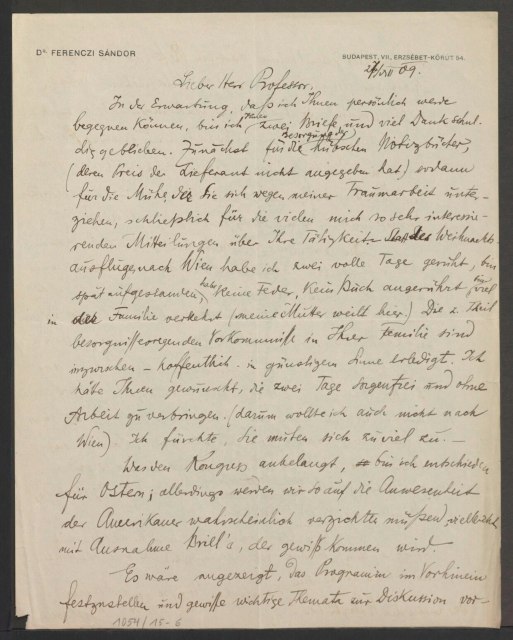 Dr. FERENCZI SÁNDOR
BUDAPEST, VII., ERZSÉBET-KÖRUT 54.
27/XII 09.
Lieber Herr Professor,
In der Erwartung, daß ich Ihnen persönlich werde
begegnen können, bin ich Ihnen zwei Briefe, und viel Dank schul-
dig geblieben. Zunächst für die Besorgung der hübschen Notizbücher,
(deren Preis der Lieferant nicht angegeben hat) sodann
für die Mühe, der Sie sich wegen meiner Traumarbeit unter-
ziehen, schließlich für die vielen mich so sehr interessie-
renden Mitteilungen über Ihre Tätigkeit. Statt des Weihnachts-
ausfluges nach Wien habe ich zwei volle Tage geruht, bin
spät aufgestanden, habe keine Feder, kein Buch angerührt, bin viel
in der Familie verkehrt (meine Mutter weilt hier.) Die z. Theil
besorgnisserregenden Vorkommniße in Ihrer Familie sind
inzwischen – hoffentlich – in günstigem Sinne erledigt. Ich
hätte Ihnen gewünscht, die zwei Tage sorgenfrei und ohne
Arbeit zu verbringen. (darum wollte ich auch nicht nach
Wien). Ich fürchte, Sie muten sich zu viel zu. –
Was den Kongress anbelangt, bin ich entschieden
für Ostern; allerdings werden wir so auf die Anwesenheit
der Amerikaner wahrscheinlich verzichten müßen, vielleicht
mit Ausnahme Brill's, der gewiß kommen wird.
Es wäre angezeigt, das Programm im Vorhinein
festzustellen und gewiße wichtige Themata zur Diskussion vor-
1054/15-6